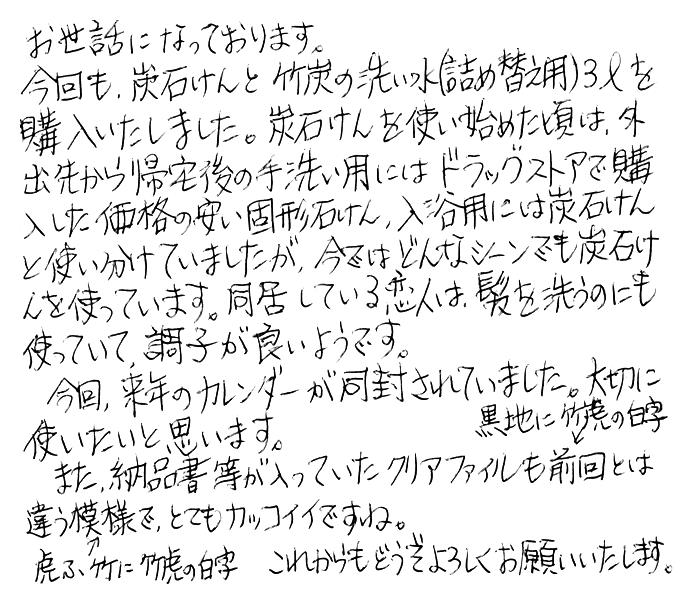 お世話になっております。
今回も、炭石けんと竹炭の洗い水(詰め替え用)3ℓを
購入いたしました。炭石けんを使い始めた頃は、外
出先から帰宅後の手洗い用にはドラッグストアで購
入した価格の安い固形石けん、入浴用には炭石けん
と使い分けていましたが、今ではどんなシーンでも炭石け
んを使っています。同居している恋人は、髪を洗うのにも
使っていて、調子が良いようです。
今回、来年のカレンダーが同封されていました。大切に
使いたいと思います。
黒地に竹虎の白字
また、納品書等が入っていたクリアファイルも前回とは
違う模様で、とてもカッコイイですね。
虎ふ竹に竹虎の白字 これからもどうぞよろしくお願いいたします。